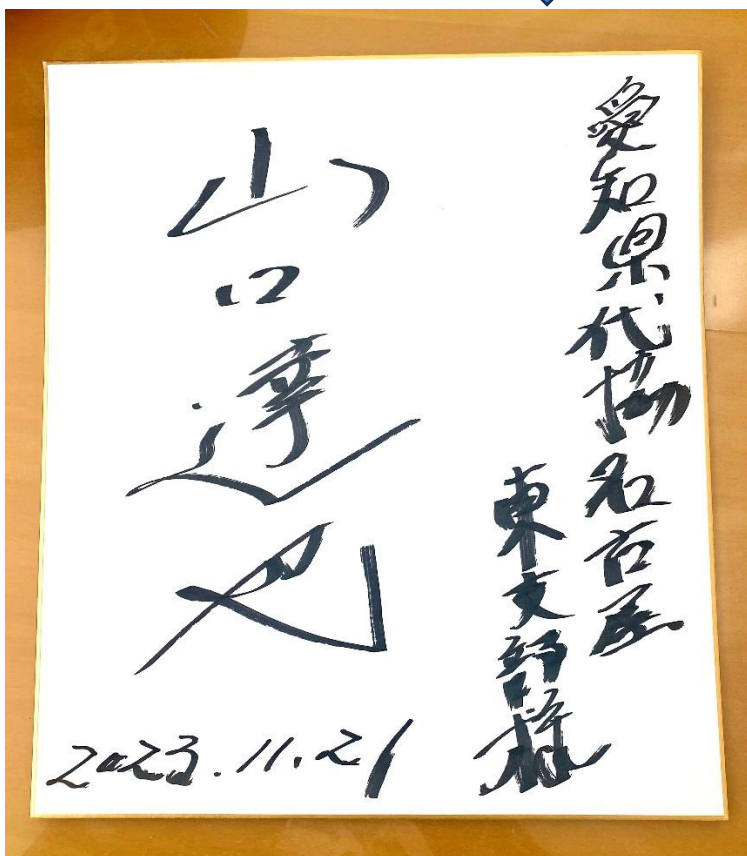 愛知県代協名古屋
東支部様
山口達也
2023.11.21